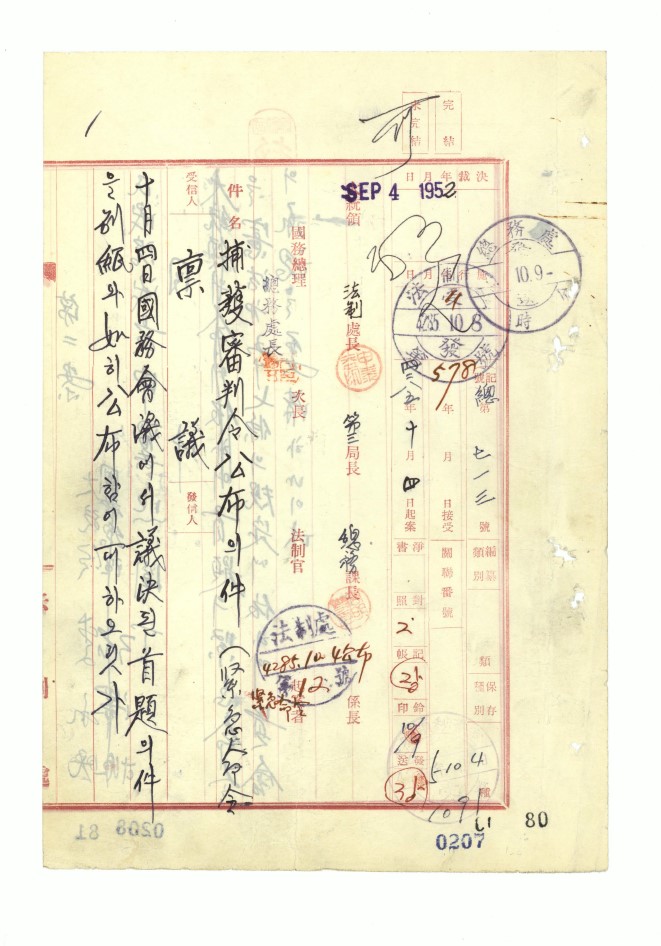 可
完結
未完結
決裁年月日
SEP 4 1952
統領
總務處
10.9
時
法制
4285 10.8
發
號
578
記號
總第七一三號
年月日接受
四二八五年十月四日起案
編纂類別
關聯番號
淨書
對照
記帳
鈐印
發送
類
保存
種別
10/9
5104
1091
法制處長
第三局長
總務課長
係長
國務總理
總務處長
次長
法制官
法制處
4285.10.4公布
第12號
緊急命令
起案者
件名
捕獲審判令公布의件 (緊急大命令)
受信人
發信人
稟議
十月四日國務會議에서議決된首題의件
을別紙와如히公布함이더하오릿가
80
0207
0208 81